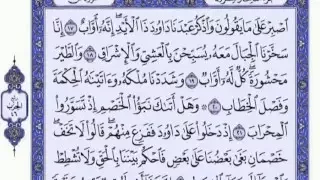 ٱصۡبِرۡ عَلَىٰ مَا يَقُولُونَ وَٱذۡكُرۡ عَبۡدَنَا دَاوُۥدَ ذَا ٱلۡأَيۡدِۖ إِنَّهُۥٓ أَوَّابٌ ١٧ إِنَّا
سَخَّرۡنَا ٱلۡجِبَالَ مَعَهُۥ يُسَبِّحۡنَ بِٱلۡعَشِيِّ وَٱلۡإِشۡرَاقِ ١٨ وَٱلطَّيۡرَ
مَحۡشُورَةٗۖ كُلّٞ لَّهُۥٓ أَوَّابٞ ١٩ وَشَدَدۡنَا مُلۡكَهُۥ وَءَاتَيۡنَٰهُ ٱلۡحِكۡمَةَ
وَفَصۡلَ ٱلۡخِطَابِ ٢٠ وَهَلۡ أَتَىٰكَ نَبَؤُاْ ٱلۡخَصۡمِ إِذۡ تَسَوَّرُواْ
ٱلۡمِحۡرَابَ ٢١ إِذۡ دَخَلُواْ عَلَىٰ دَاوُۥدَ فَفَزِعَ مِنۡهُمۡۖ قَالُواْ لَا تَخَفۡۖ
خَصۡمَانِ بَغَىٰ بَعۡضُنَا عَلَىٰ بَعۡضٖ فَٱحۡكُم بَيۡنَنَا بِٱلۡحَقِّ وَلَا تُشۡطِطۡ